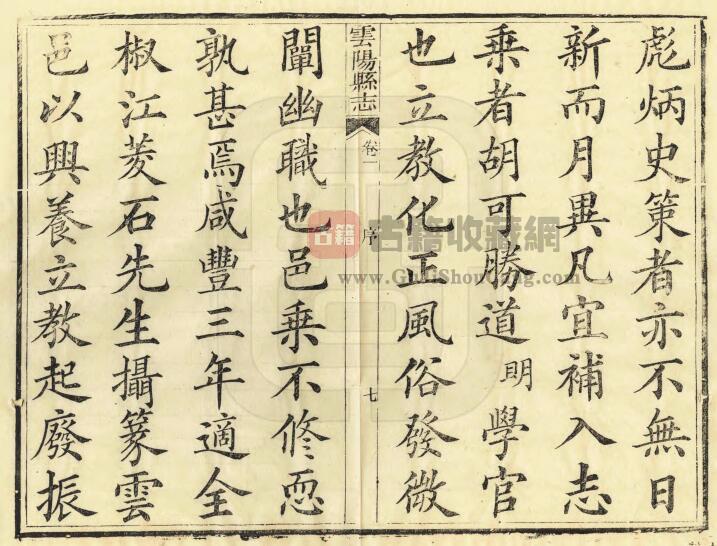 彪炳史策者亦不無日
新而月異凡宜補入志
乗者胡可勝道明學官
也立教化正風俗發微
雲陽縣志
卷一
序
七
闡幽職也邑乗不修恧
孰甚焉咸豐三年適全
椒江菱石先生攝篆雲
邑以興養立教起廢振
古籍
古籍收藏網
www.GuJiShouCang.com